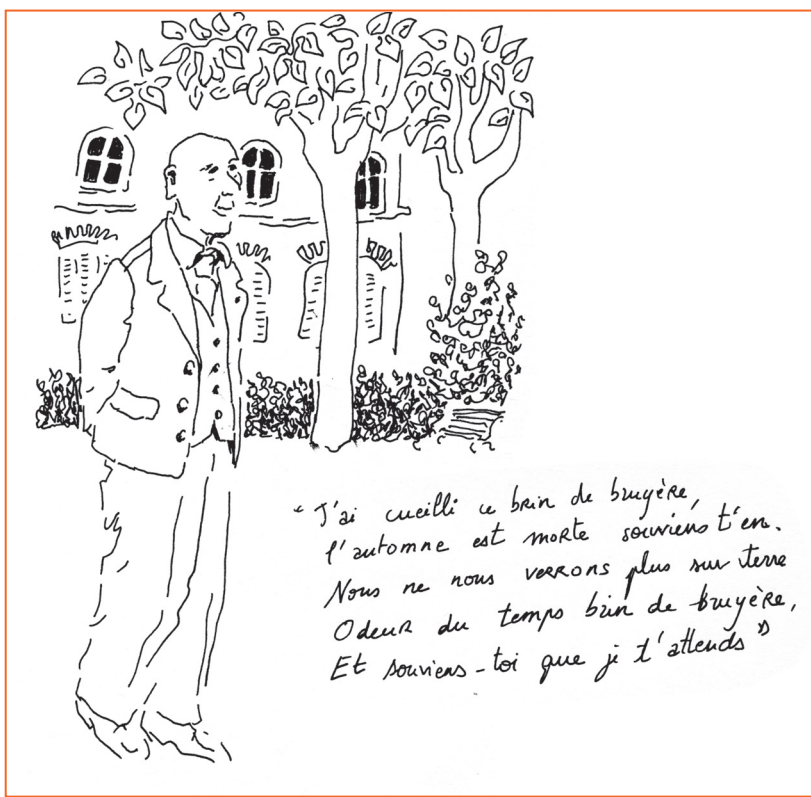 "J'ai cueilli ce brin de bruyère,
l'automne est morte souviens t'en.
Nous ne nous verrons plus sur terre
Odeur du temps brin de bruyère,
Et souviens-toi que je t'attends"